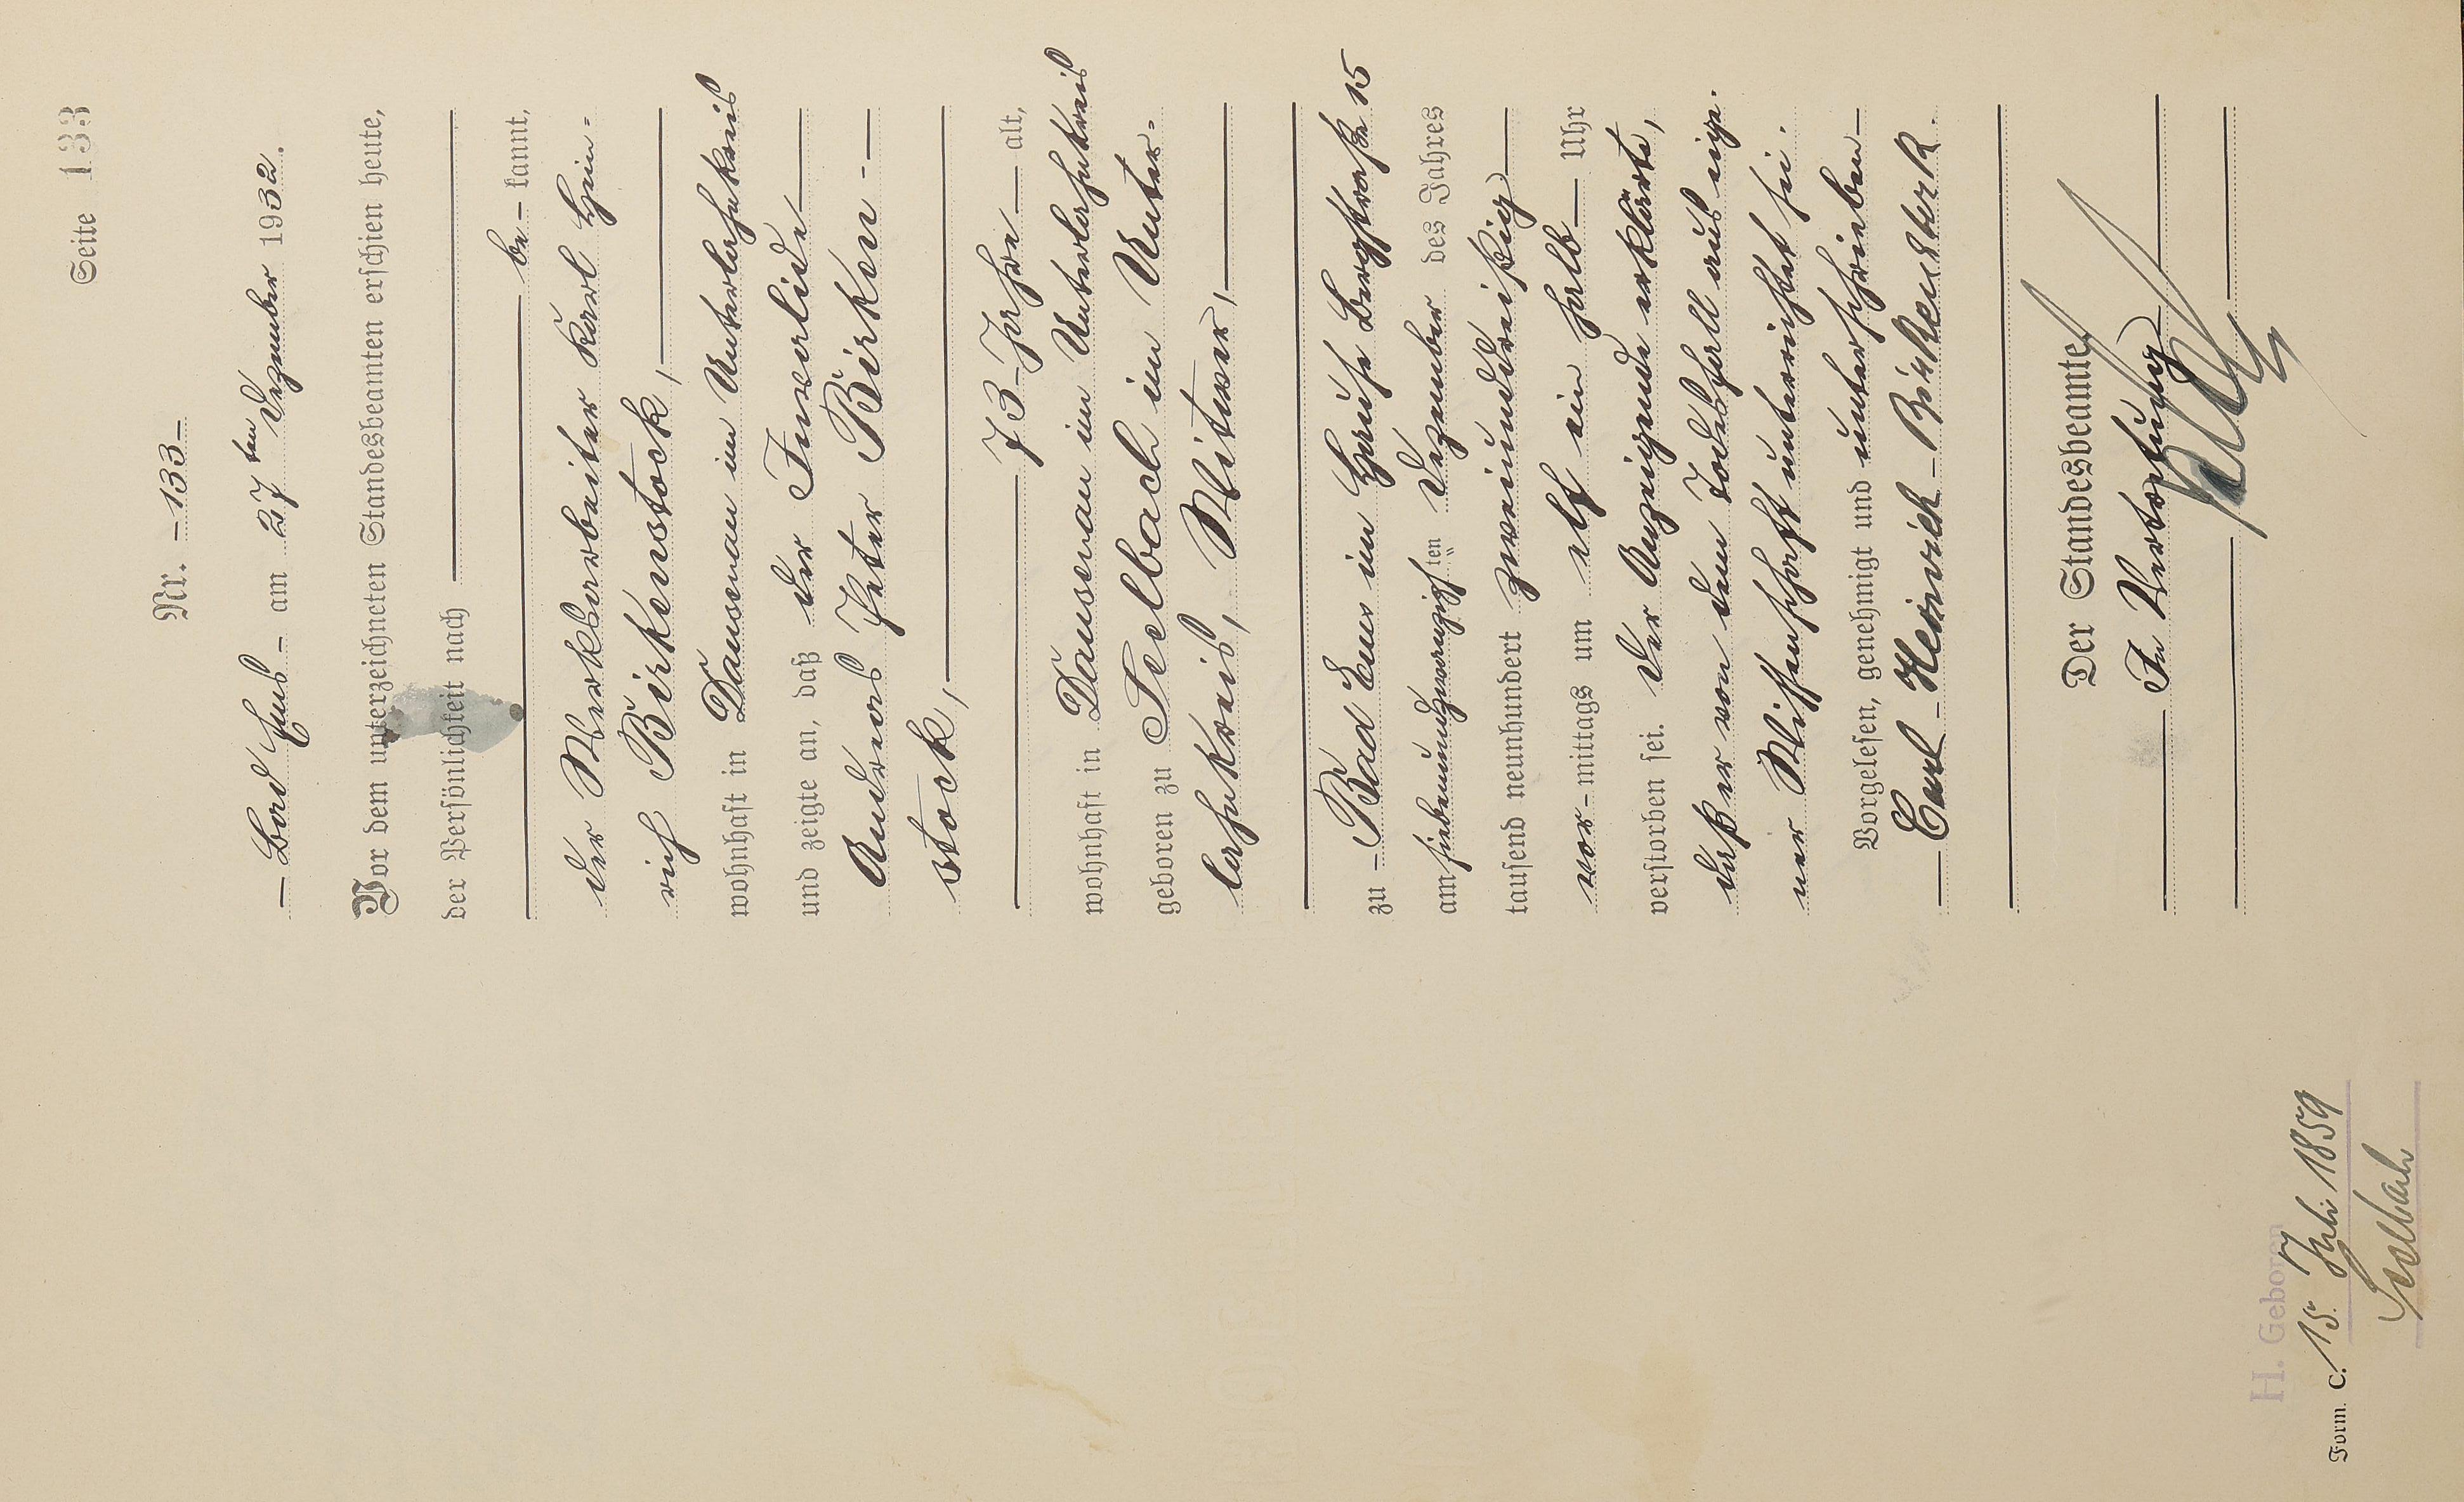 Seite 133
Nr. - 133 -
- Bad Ems - am 27ten Dezember 1932.
Vor dem unterzeichneten Standesbeamten erschien heute,
der Persönlichkeit nach
be- kannt,
der Werksarbeiter Karl Hein-
rich Birkenstock,
wohnhaft in Dausenau im Unterlahnkreis
und zeigte an, daß der Invalide
Andreas Peter Birken-
stock,
73 Jahre alt,
wohnhaft in Dausenau im Unterlahnkreis
geboren zu Seelbach im Unter-
lahnkreis, Witwer,
zu - Bad Ems im Hause Bergstraße 15
am siebenundzwanzigsten Dezember des Jahres
tausend neunhundert zweiunddreißig
vor-mittags um elf ein halb Uhr
verstorben sei. Der Anzeigende erklärte,
daß er von dem Todesfall aus eige-
ner Wissenschaft unterrichtet sei.
Vorgelesen, genehmigt und unterschrieben
Carl-Heinrich-Birkenstock.
Der Standesbeamte
In Vertretung
H. Geboren
15. Juli 1859
Seelbach
Form. C.